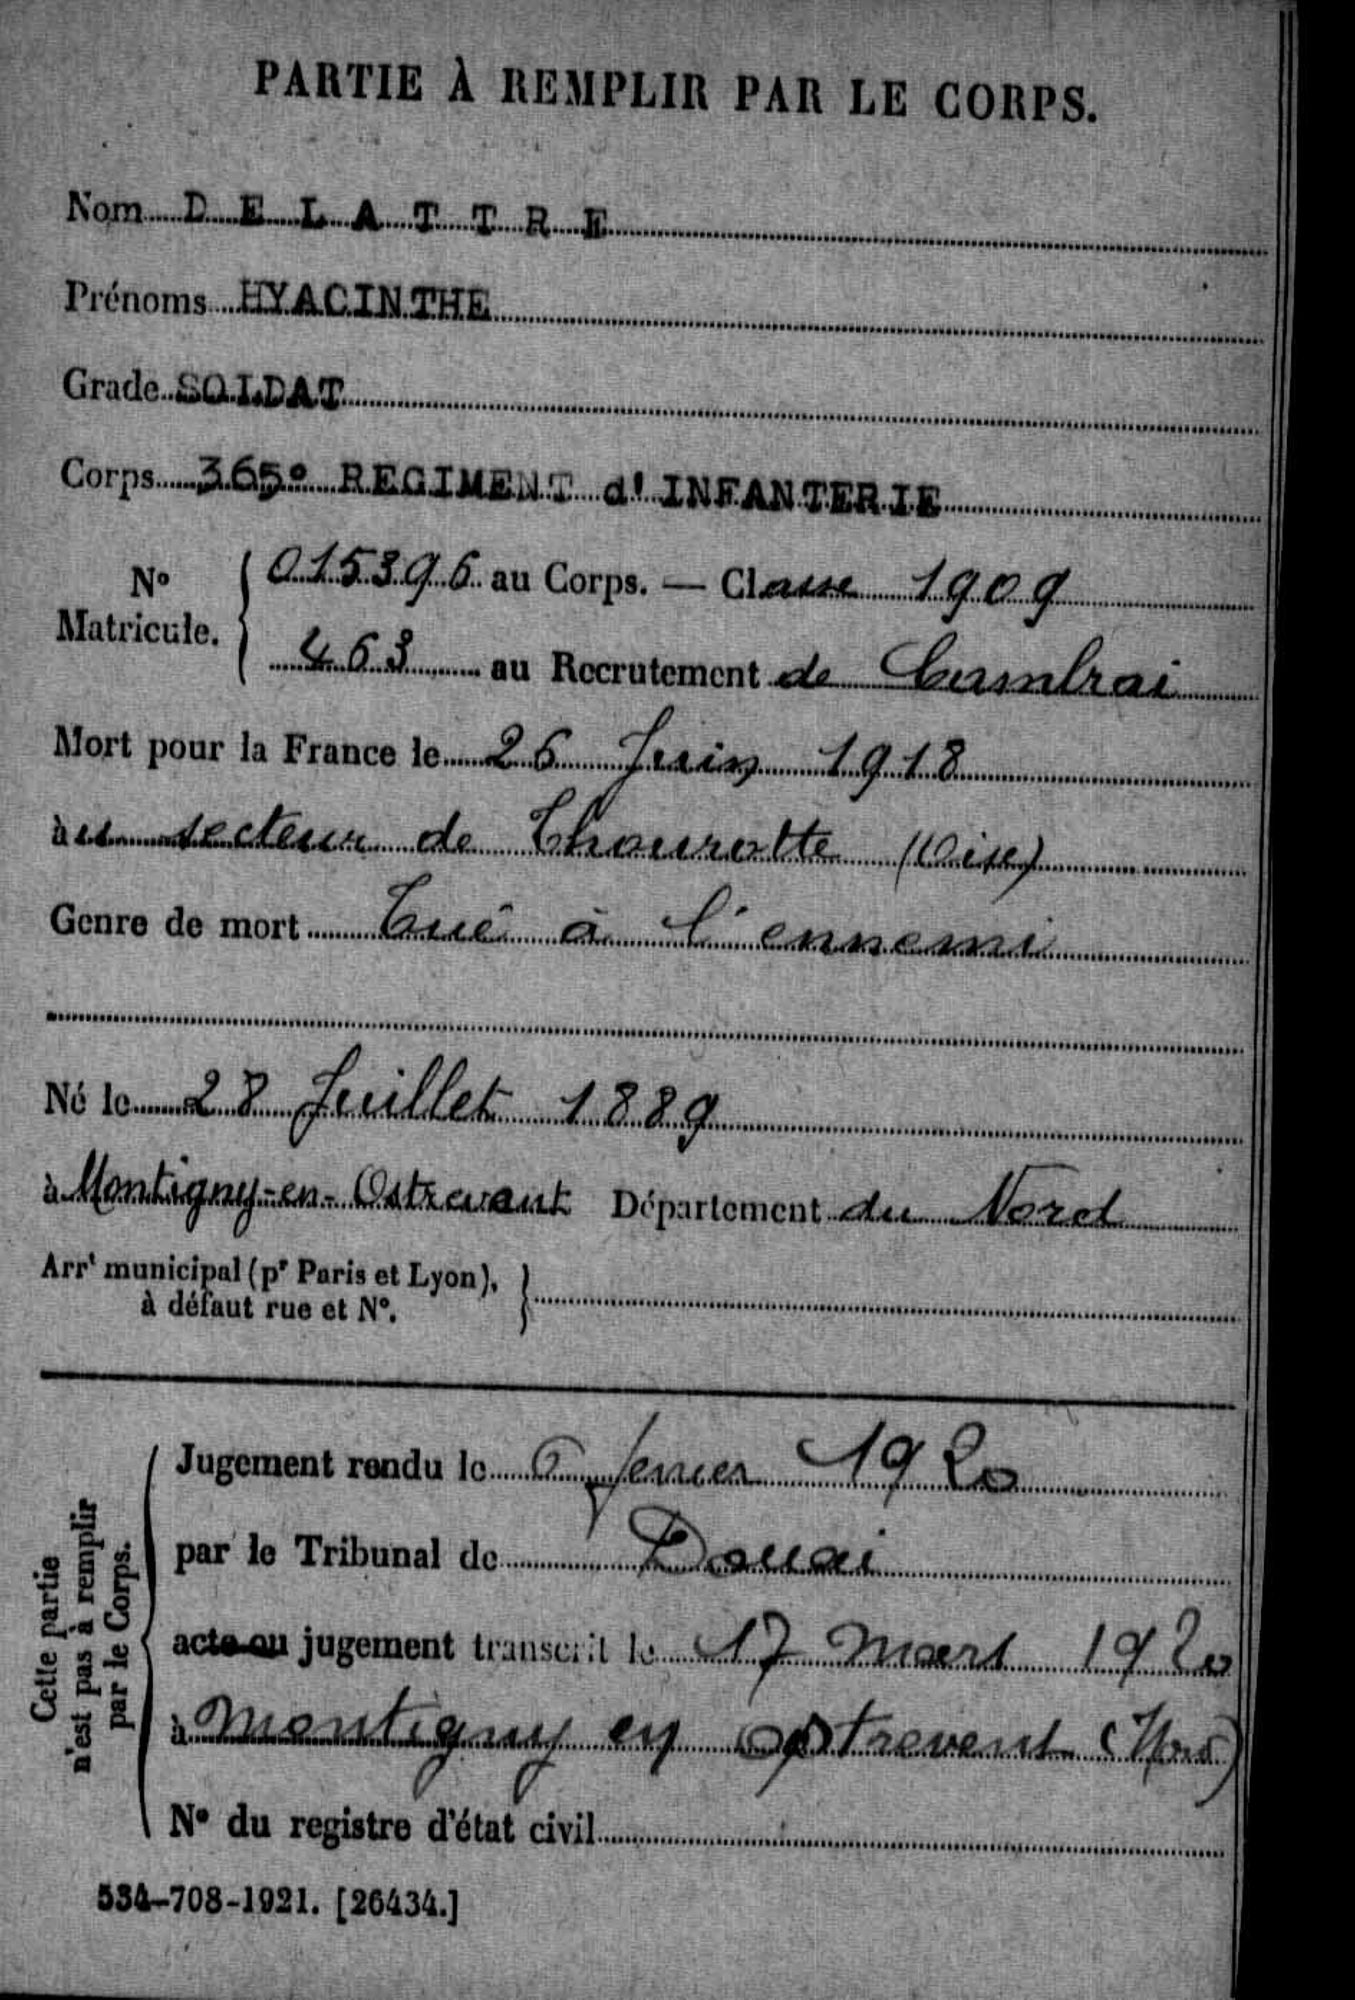 PARTIE À REMPLIR PAR LE CORPS.
Nom DELATTRE
Prénoms HYACINTHE
Grade SOLDAT
Corps 365e REGIMENT d'INFANTERIE
No Matricule. { 015396 au Corps. — Classe 1909
463 au Recrutement de Cambrai
Mort pour la France le 26 Juin 1918
au secteur de Thourotte (Oise)
Genre de mort Tué à l'ennemi
Né le 28 Juillet 1889
à Montigny-en-Ostrevant Département du Nord
Arrt municipal (pr Paris et Lyon),
à défaut rue et No.
Cette partie
n'est pas à remplir
par le Corps.
Jugement rendu le 6 fevrier 1920
par le Tribunal de Douai
acte ou jugement transcrit le 17 mars 1920
à Montigny en Ostrevent (Nord)
No du registre d'état civil
534-708-1921. [26434.]